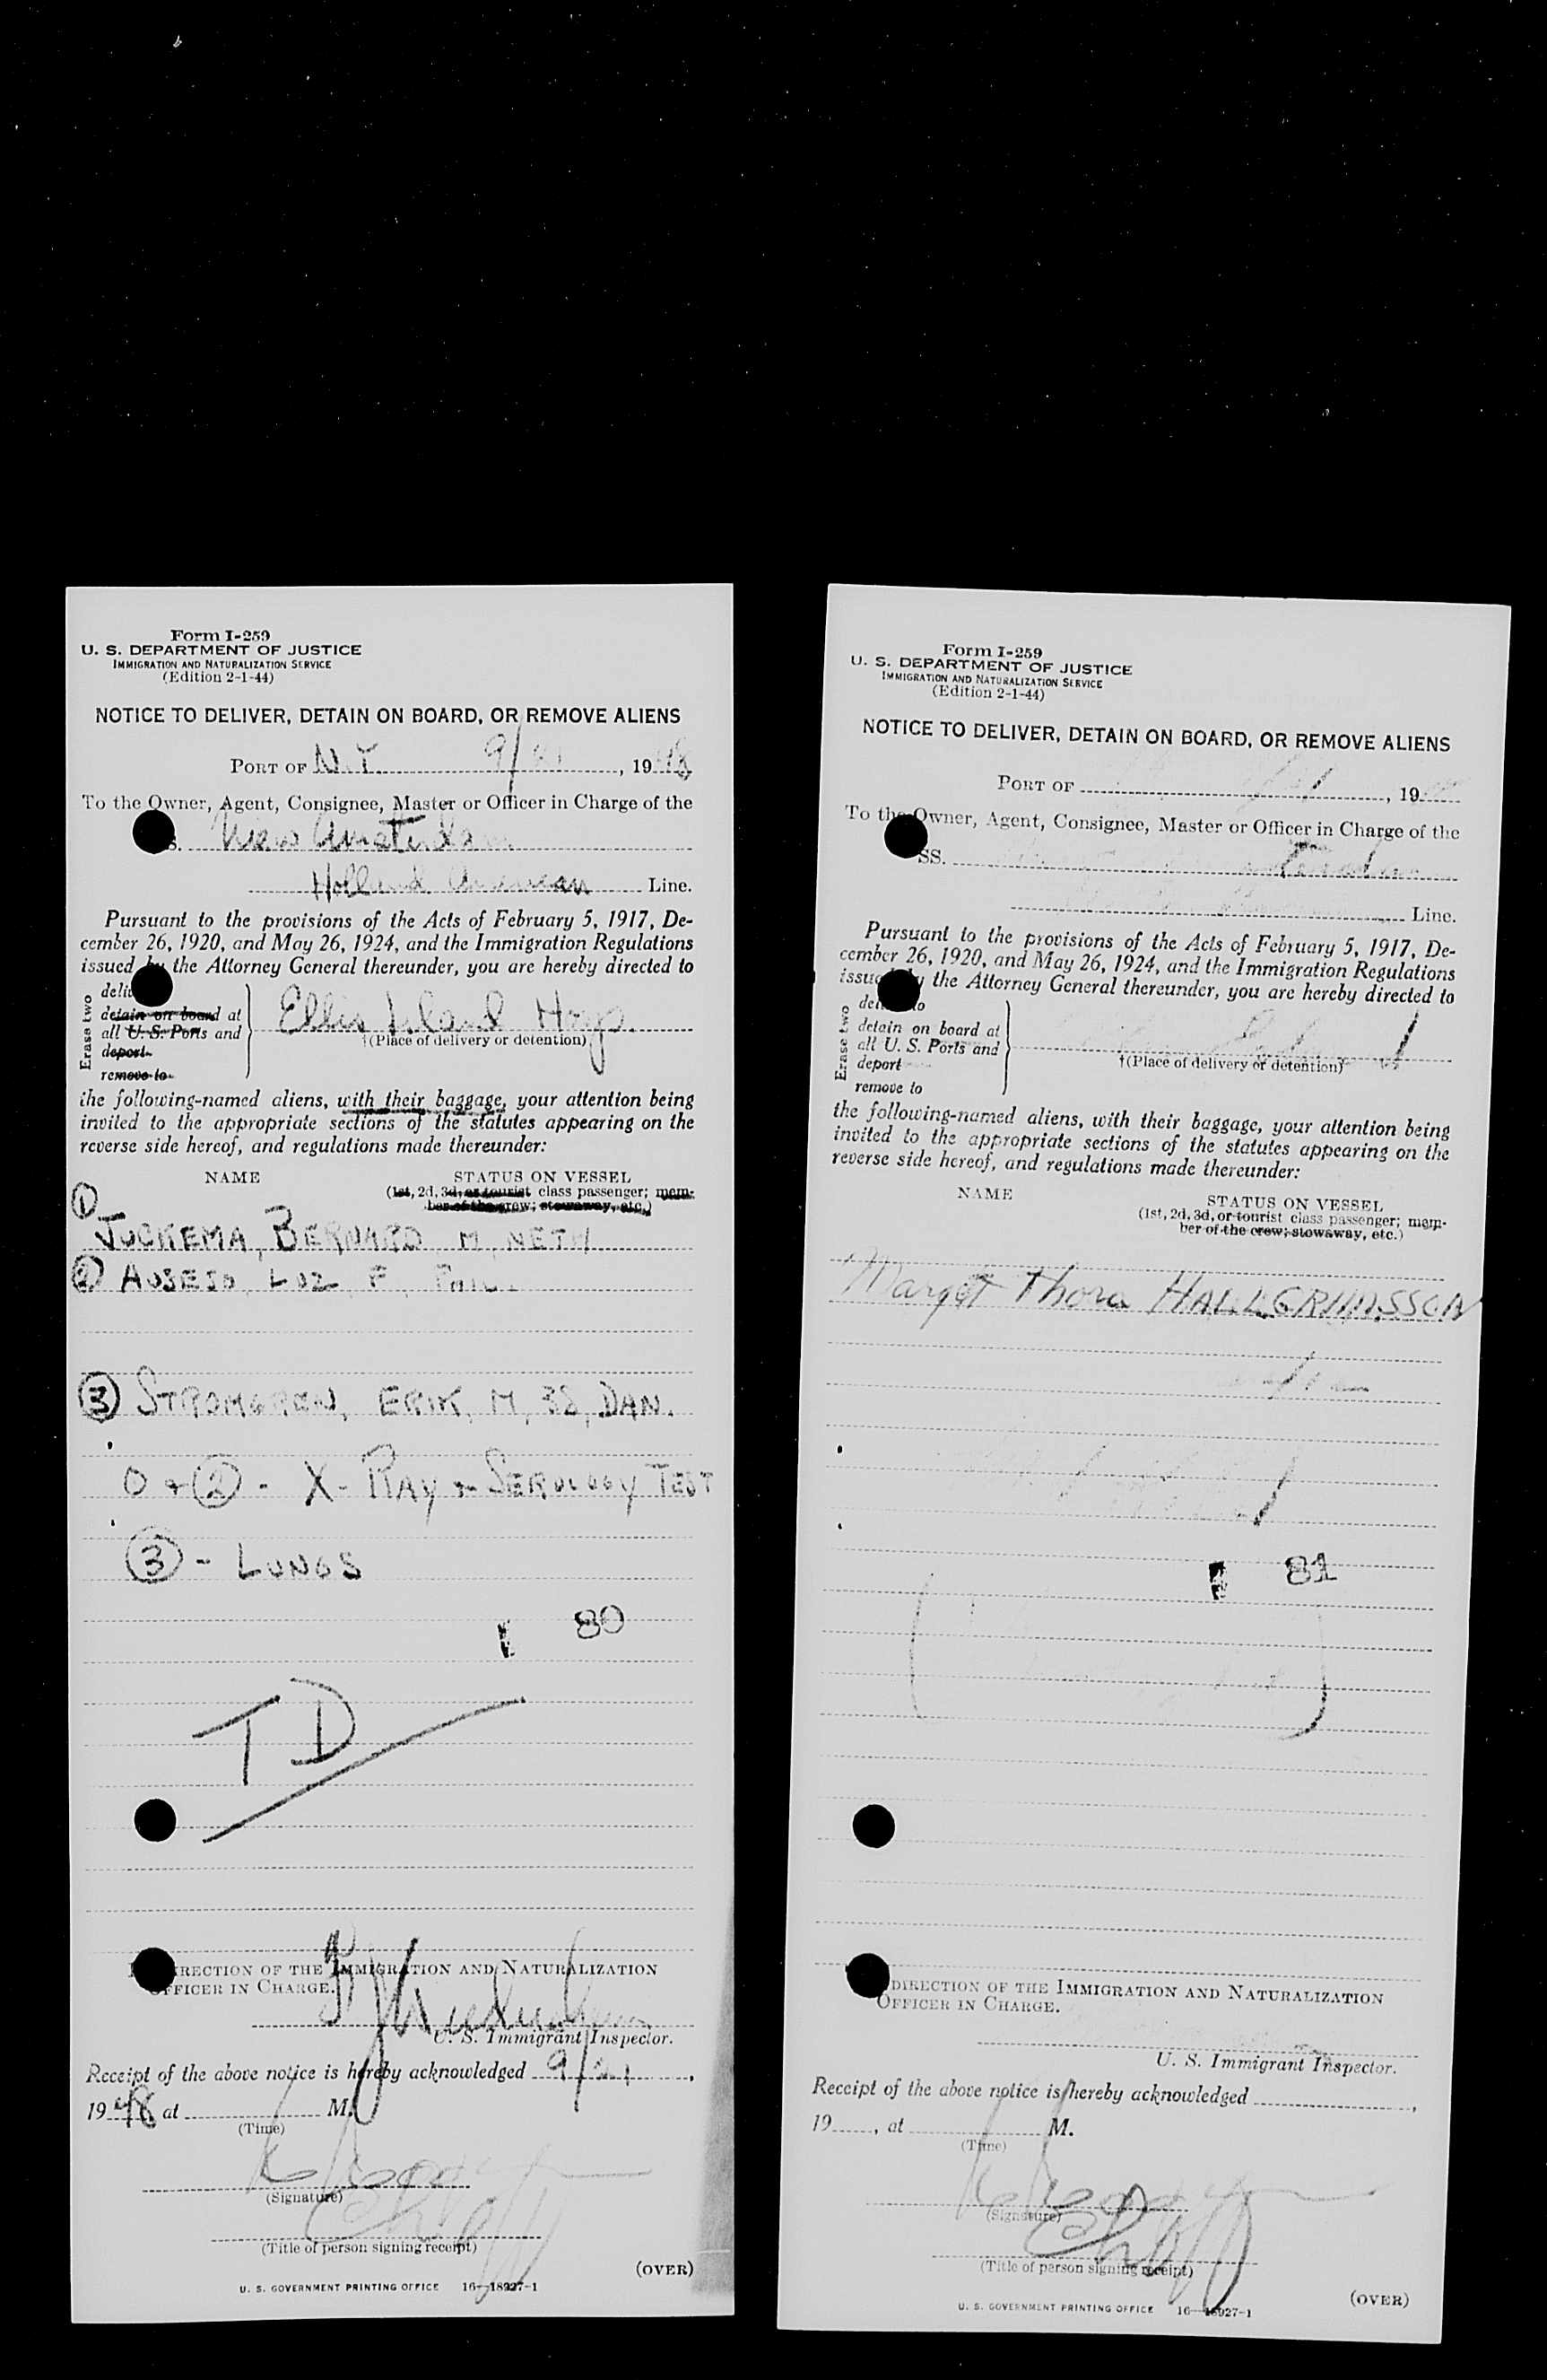 Form I-259
U. S. DEPARTMENT OF JUSTICE
IMMIGRATION AND NATURALIZATION SERVICE
(Edition 2-1-44)
NOTICE TO DELIVER, DETAIN ON BOARD, OR REMOVE ALIENS
PORT OF N.Y. 9/21, 1948
To the Owner, Agent, Consignee, Master or Officer in Charge of the
S. New Amsterdam
Holland American Line.
Pursuant to the provisions of the Acts of February 5, 1917, De-
cember 26, 1920, and May 26, 1924, and the Immigration Regulations
issued by the Attorney General thereunder, you are hereby directed to
Erase two
deli
detain on board at
all U. S. Ports and
deport
remove to
Ellis Island Hosp.
†(Place of delivery or detention)
the following-named aliens, with their baggage, your attention being
invited to the appropriate sections of the statutes appearing on the
reverse side hereof, and regulations made thereunder:
NAME STATUS ON VESSEL
(1st, 2d, 3d, or tourist class passenger; mem-
ber of the crew; stowaway, etc.)
① JUCKEMA, BERNARD M, NETH
② AUSEJO, LUZ F, PHIL.
③ STROMGREN, ERIK, M, 38, DAN.
② - X-RAY & SEROLOGY TEST
③ - LUNGS
80
TD
DIRECTION OF THE IMMIGRATION AND NATURALIZATION
OFFICER IN CHARGE.
U. S. Immigrant Inspector.
Receipt of the above notice is hereby acknowledged 9/21,
1948 at M.
(Time)
(Signature)
(Title of person signing receipt)
(OVER)
U. S. GOVERNMENT PRINTING OFFICE 16—18927-1
Form I-259
U. S. DEPARTMENT OF JUSTICE
IMMIGRATION AND NATURALIZATION SERVICE
(Edition 2-1-44)
NOTICE TO DELIVER, DETAIN ON BOARD, OR REMOVE ALIENS
PORT OF , 19
To the Owner, Agent, Consignee, Master or Officer in Charge of the
SS.
Line.
Pursuant to the provisions of the Acts of February 5, 1917, De-
cember 26, 1920, and May 26, 1924, and the Immigration Regulations
issued by the Attorney General thereunder, you are hereby directed to
Erase two
to
detain on board at
all U. S. Ports and
deport
remove to
†(Place of delivery or detention)
the following-named aliens, with their baggage, your attention being
invited to the appropriate sections of the statutes appearing on the
reverse side hereof, and regulations made thereunder:
NAME STATUS ON VESSEL
(1st, 2d, 3d, or tourist class passenger; mem-
ber of the crew; stowaway, etc.)
Margét Thora HALLGRIMSSON
81
DIRECTION OF THE IMMIGRATION AND NATURALIZATION
OFFICER IN CHARGE.
U. S. Immigrant Inspector.
Receipt of the above notice is hereby acknowledged ,
19 , at M.
(Time)
(Signature)
(Title of person signing receipt)
(OVER)
U. S. GOVERNMENT PRINTING OFFICE 16—18927-1